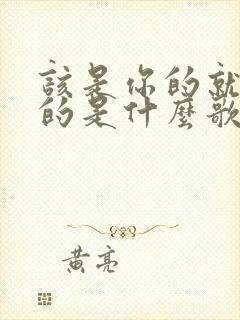 該是你的就
的是什麼歌
黃亮